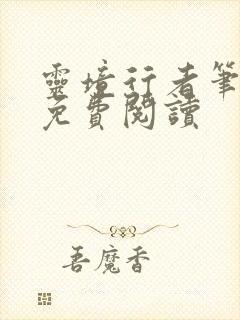 靈境行者筆
免費閱讀
吾魔香